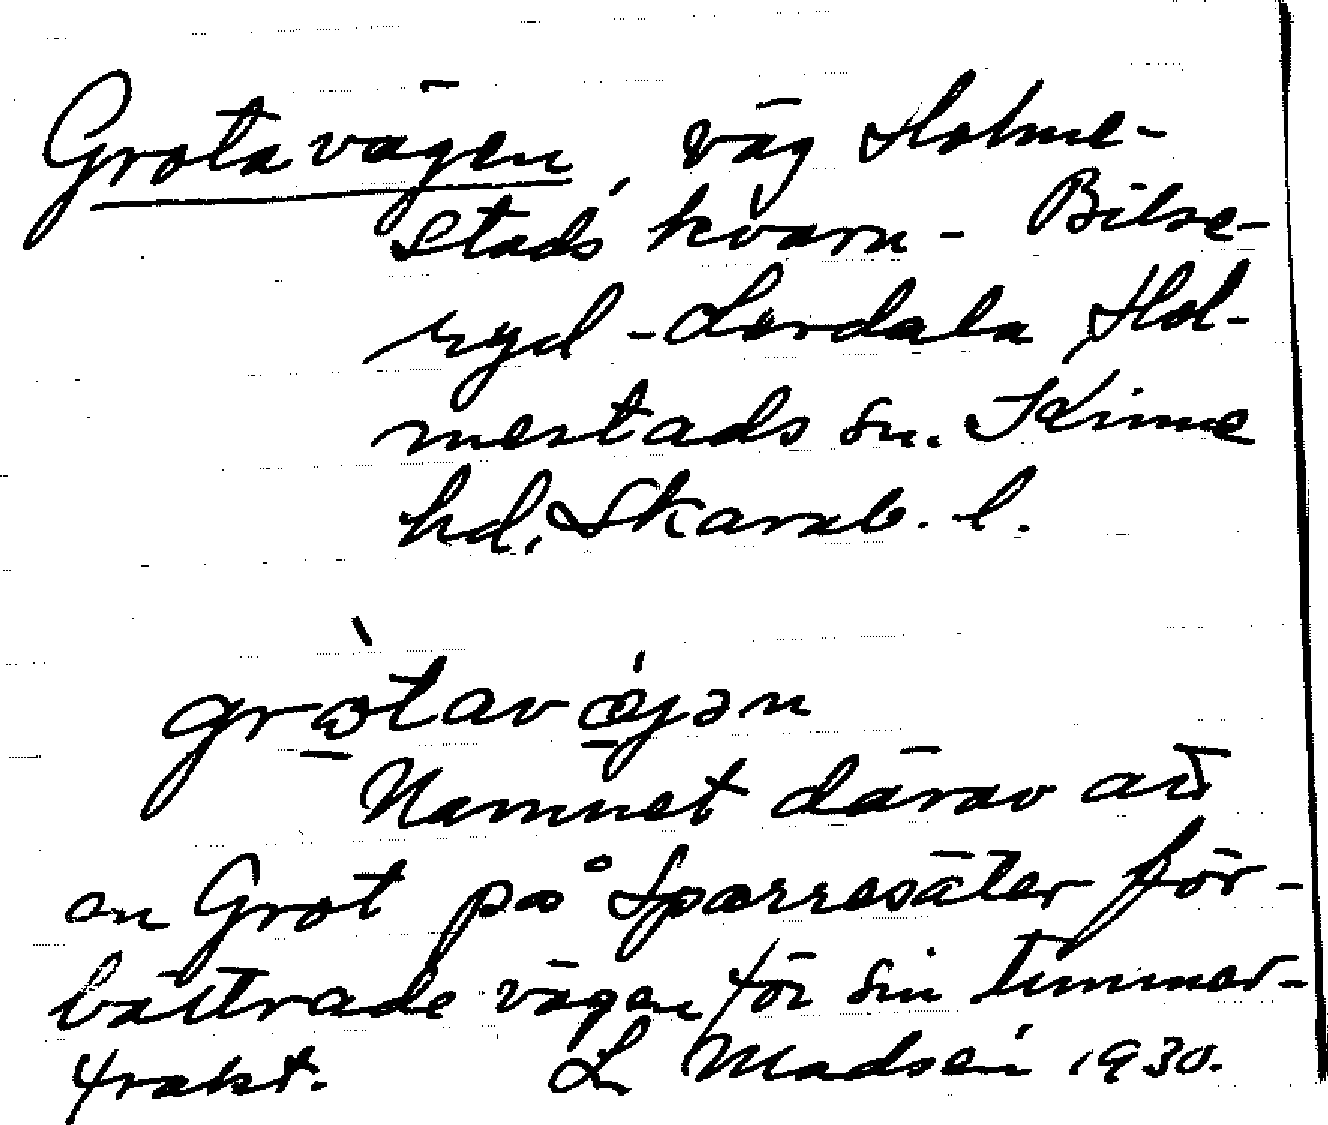 Grotavägen, väg Holme-
stads kvarn - Bilse-
ryd - Lerdala Hol-
mestads sn. Kinne
hd, Skarab. l.
gròtavǽjən
Namnet därav att
en Grot på Sparresäter för-
bättrade vägen för sin timmer-
frakt. L Madsén 1930.